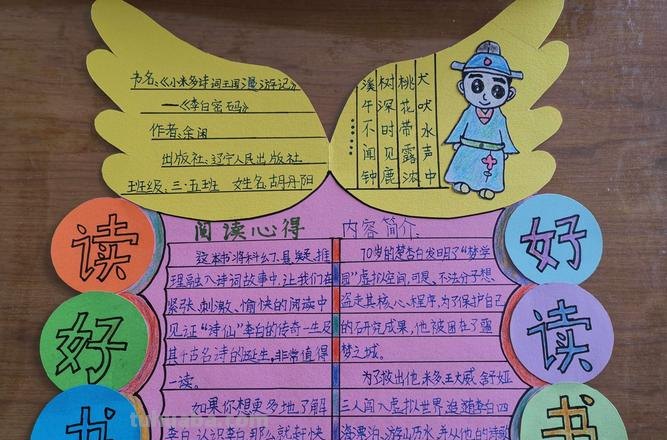 书名:《小米多诗词王国漫游记》
——《李白密码》
作者:余闲
出版社:辽宁人民出版社
班级:三·五班 姓名:胡丹阳
犬吠水声中
桃花带露浓
树深时见鹿
溪午不闻钟
……
读好书
好读书
阅读心得
这本书将科幻、悬疑、推
理融入诗词故事中,让我们在
紧张、刺激、愉快的阅读中
见证“诗仙”李白的传奇一生及
其千古名诗的诞生,非常值得
一读。
如果你想更多地了解
李白,认识李白,那么就赶快
内容简介:
70岁的楚李白发明了“梦学
园”虚拟空间,可是,不法分子想
盗走其核心程序,为了保护自己
的研究成果,他被困在了噩
梦之城。
为了救出他,米多、王大威、舒娅
三人闯入虚拟世界,追随李白四
海漂泊、游山历水,并从他的诗歌